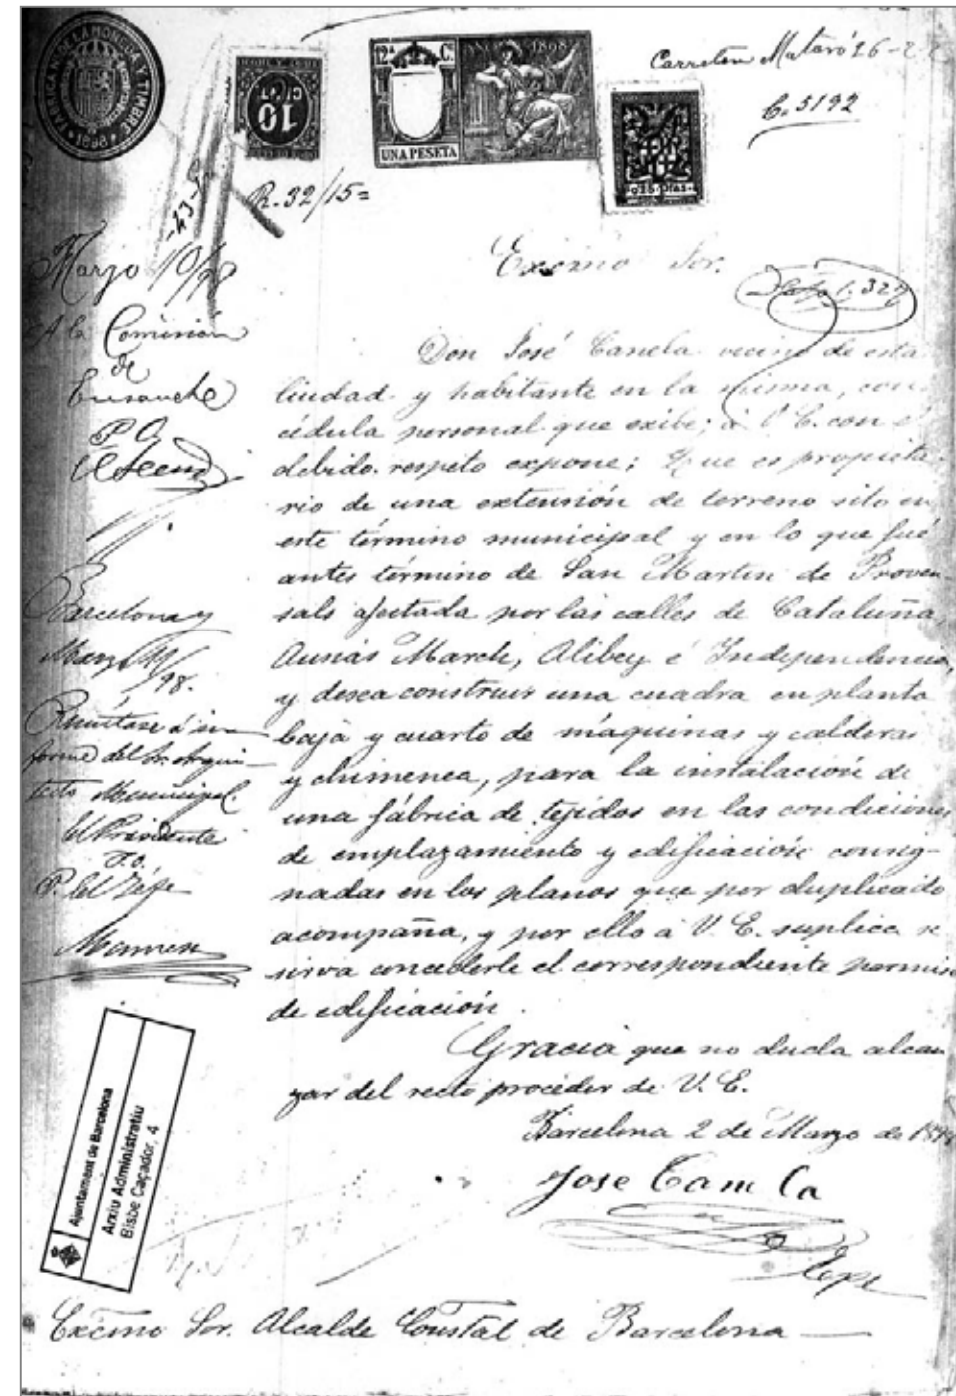 FABRICA NACIONAL DE LA MONEDA Y TIMBRE
1898
10
12ª C.
AÑO 1898
UNA PESETA
Carretera Mataró 26-2
C. 5192
R. 32/15=
Marzo 10/98
A la Comisión
de
Ensanche
P. O.
Barcelona y
Marzo 11/98.
Remítase á in-
forme del Sr. Arqui-
tecto Municipal.
El Presidente
P. O.
Excmo Sor.
Don José Canela vecino de esta
Ciudad y habitante en la misma, con
cédula personal que exibe; á V. E. con el
debido respeto expone; Que es propieta-
rio de una extensión de terreno sito en
este término municipal y en lo que fué
antes término de San Martin de Proven-
sals afectada por las calles de Cataluña,
Ausias March, Alibey é Independencia,
y desea construir una cuadra en planta
baja y cuarto de máquinas y calderas
y chimenea, para la instalación de
una fábrica de tejidos en las condiciones
de emplazamiento y edificación consig-
nadas en los planos que por duplicado
acompaña, y por ello á V. E. suplica se
sirva concederle el correspondiente permiso
de edificación.
Gracia que no duda alcan-
zar del recto proceder de V. E.
Barcelona 2 de Marzo de 1898
Jose Canela
Ajuntament de Barcelona
Arxiu Administratiu
Bisbe Caçador, 4
Excmo Sor. Alcalde Constal de Barcelona